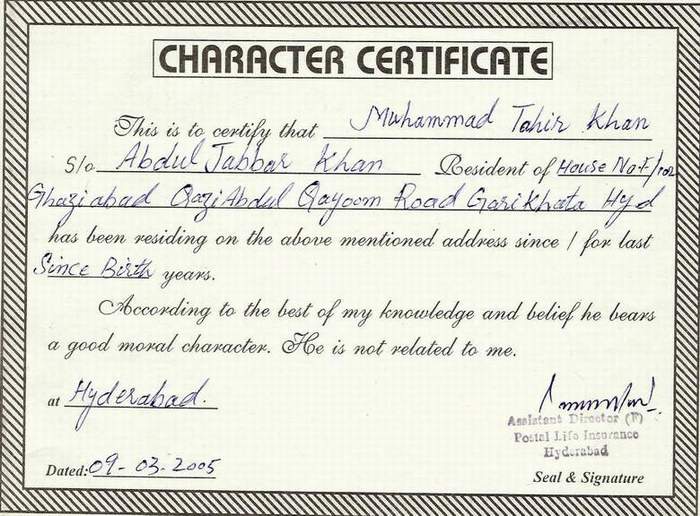 CHARACTER CERTIFICATE
This is to certify that Muhammad Tahir Khan
S/o. Abdul Jabbar Khan Resident of House No F/102
Ghaziabad Qazi Abdul Qayoom Road Garikhata Hyd
has been residing on the above mentioned address since / for last
Since Birth years.
According to the best of my knowledge and belief he bears
a good moral character. He is not related to me.
at Hyderabad.
Assistant Director (F)
Postal Life Insurance
Hyderabad
Dated: 09-03-2005
Seal & Signature